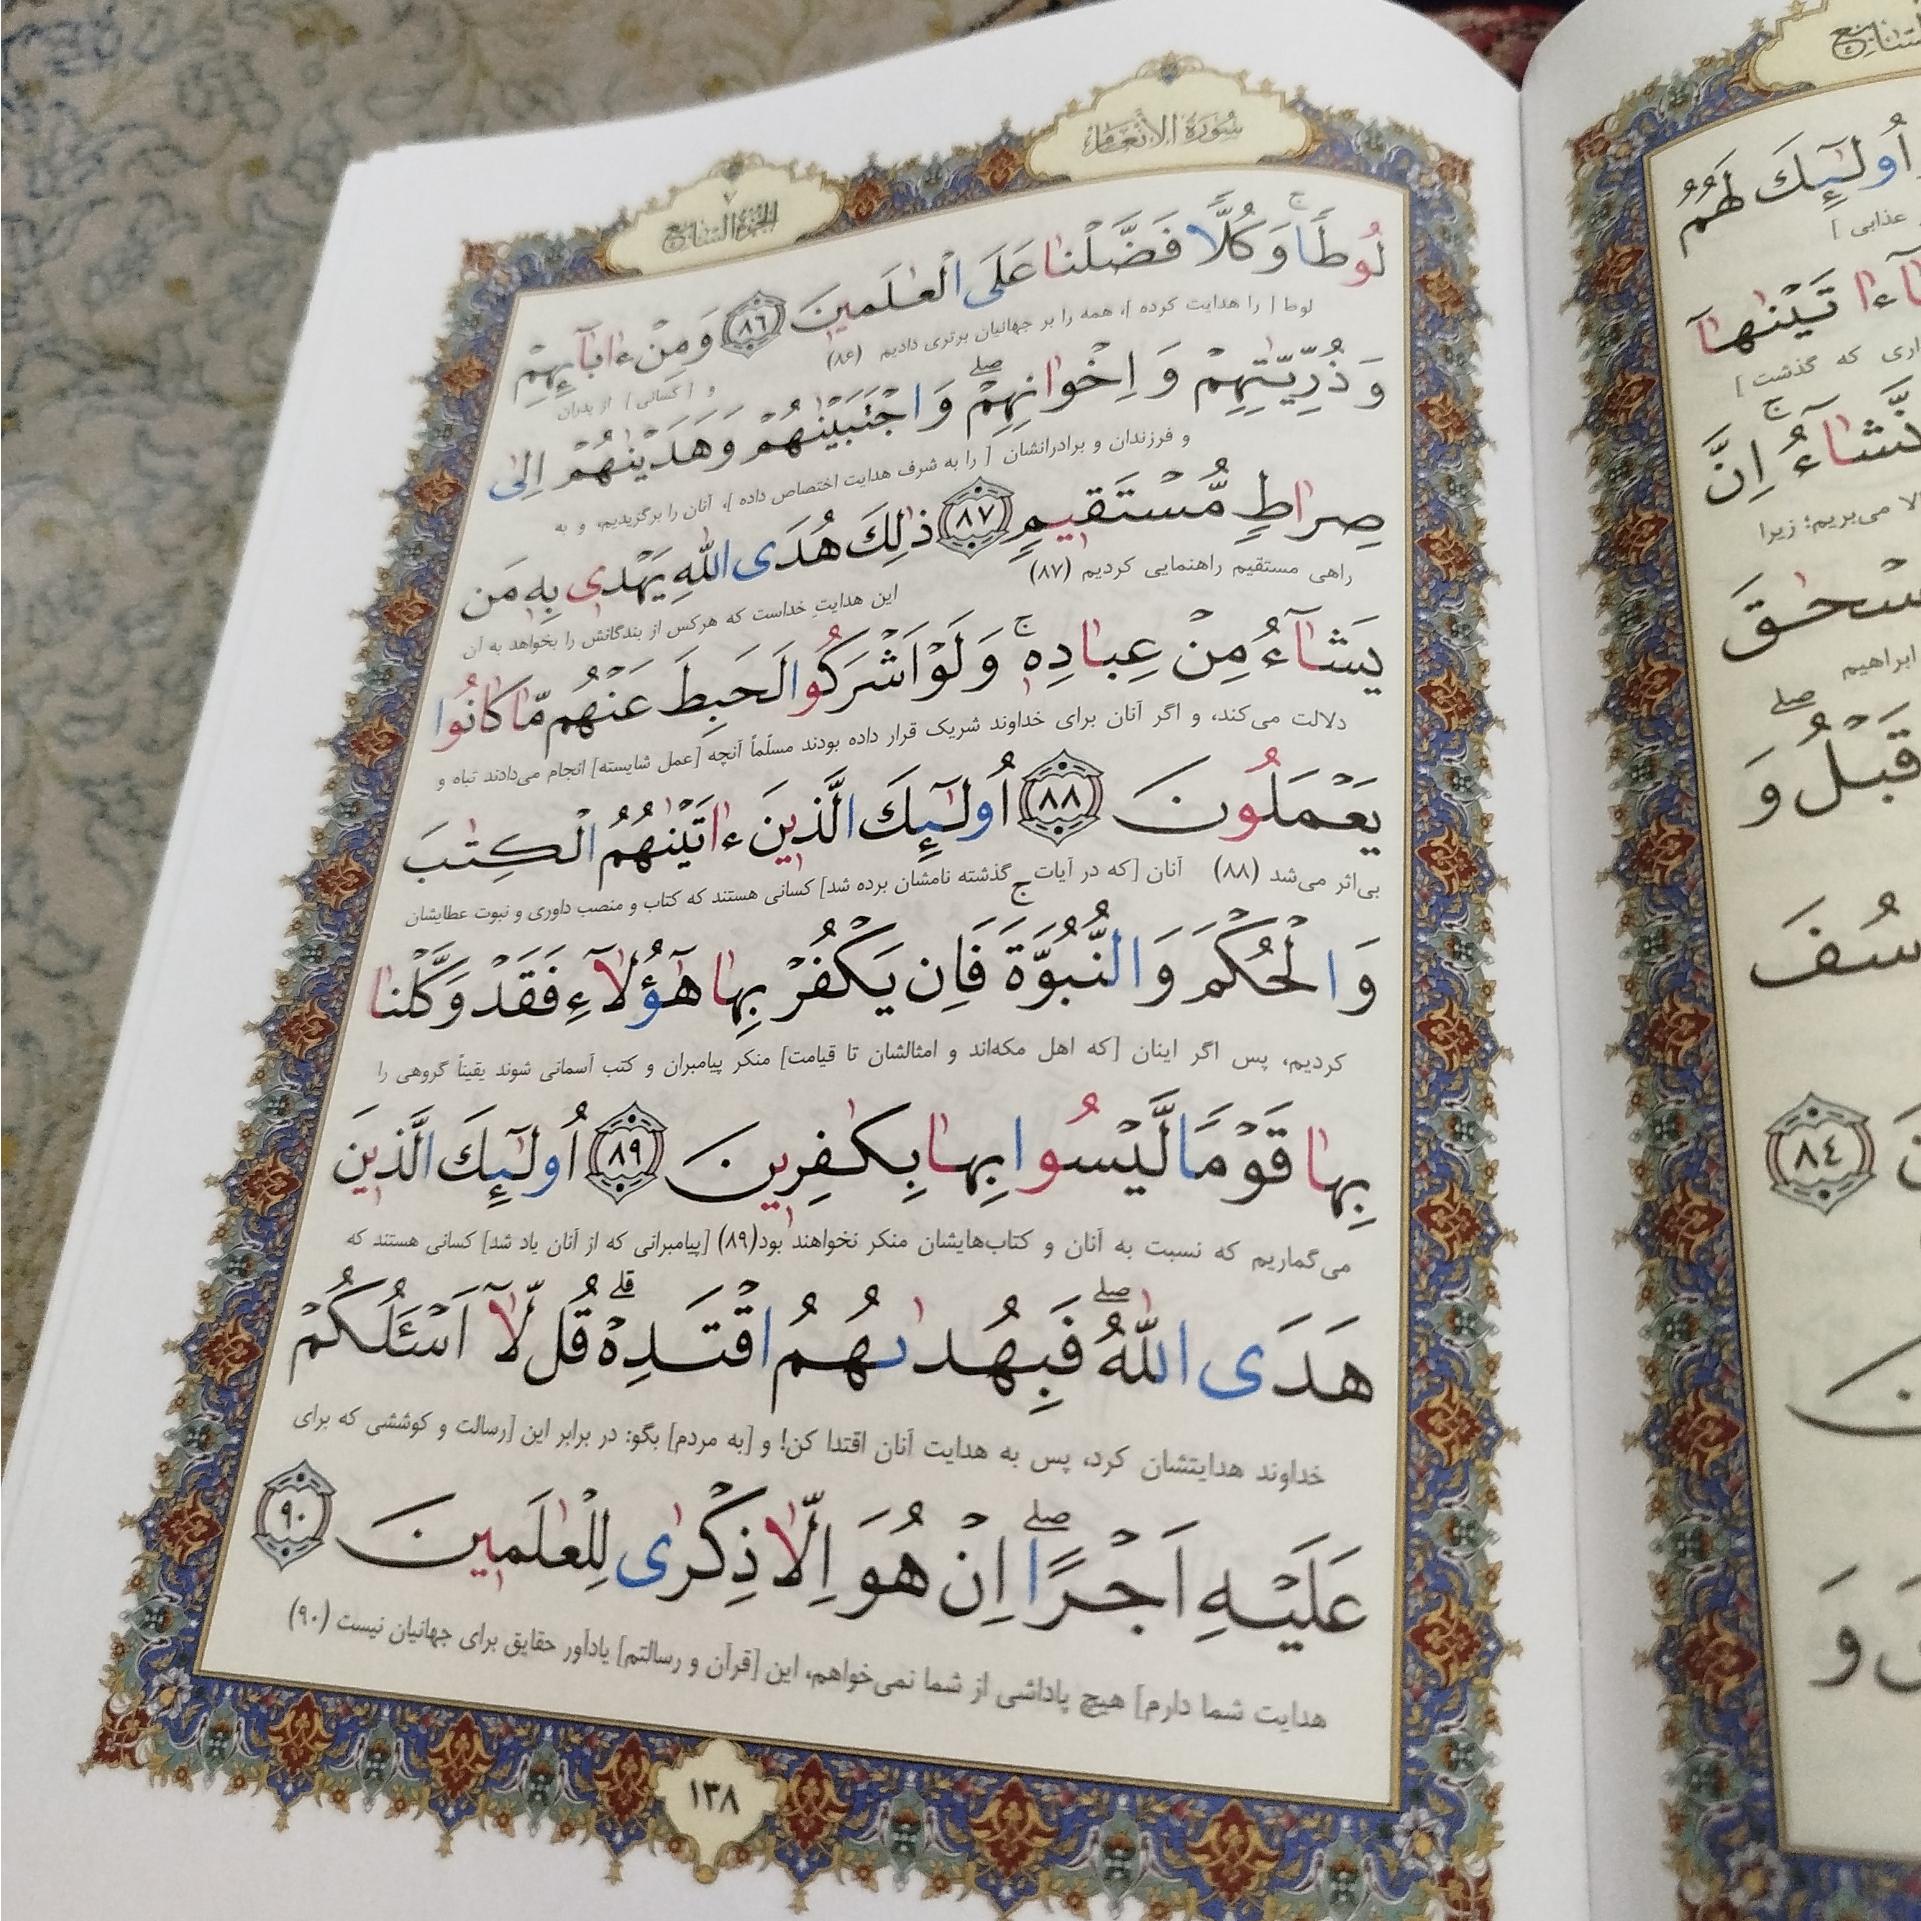 سُورَةُ الْأَنْعَامِ
الجُزْءُ السَّابِع
۷
لُوطًا وَكُلًّا فَضَّلْنَا عَلَى الْعٰلَمينَ ﴿٨٦﴾ وَ مِنْ ءَابَآئِهِمْ
لوط [ را هدایت کرده ]، همه را بر جهانیان برتری دادیم (۸۶) و [ کسانی ] از پدران
وَ ذُرِّيّٰتِهِمْ وَ اِخْوَانِهِمْ ۖ وَ اجْتَبَيْنٰهُمْ وَ هَدَيْنٰهُمْ اِلىٰ
و فرزندان و برادرانشان [ را به شرف هدایت اختصاص داده ]، آنان را برگزیدیم، و به
صِراطٍ مُّسْتَقيمٍ ﴿٨٧﴾ ذٰلِكَ هُدَى اللّٰهِ يَهْدى بِهٖ مَن
راهی مستقیم راهنمایی کردیم (۸۷) این هدایتِ خداست که هرکس از بندگانش را بخواهد به آن
يَشَآءُ مِنْ عِبادِهٖ ۚ وَ لَوْ اَشْرَكُوا لَحَبِطَ عَنْهُم مّا كَانُوا
دلالت می‌کند، و اگر آنان برای خداوند شریک قرار داده بودند مسلّماً آنچه [عمل شایسته] انجام می‌دادند تباه و
يَعْمَلُونَ ﴿٨٨﴾ اُولٰٓئِكَ الَّذينَ ءَاتَيْنٰهُمُ الْكِتٰبَ
بی‌اثر می‌شد (۸۸) آنان [که در آیات گذشته نامشان برده شد] کسانی هستند که کتاب و منصب داوری و نبوت عطایشان
وَ الْحُكْمَ وَ النُّبُوَّةَ ۚ فَاِن يَكْفُرْ بِهَا هٰٓؤُلَآءِ فَقَدْ وَكَّلْنا
کردیم، پس اگر اینان [که اهل مکه‌اند و امثالشان تا قیامت] منکر پیامبران و کتب آسمانی شوند یقیناً گروهی را
بِها قَوْمًا لَّيْسُوا بِها بِكٰفِرينَ ﴿٨٩﴾ اُولٰٓئِكَ الَّذينَ
می‌گماریم که نسبت به آنان و کتاب‌هایشان منکر نخواهند بود(۸۹) [پیامبرانی که از آنان یاد شد] کسانی هستند که
هَدَى اللّٰهُ ۖ فَبِهُدىٰهُمُ اقْتَدِهْ ۗ قُل لَّآ اَسْئَلُكُمْ
خداوند هدایتشان کرد، پس به هدایت آنان اقتدا کن! و [به مردم] بگو: در برابر این [رسالت و کوششی که برای
عَلَيْهِ اَجْرًا ۖ اِنْ هُوَ اِلّا ذِكْرىٰ لِلْعٰلَمينَ ﴿٩٠﴾
هدایت شما دارم] هیچ پاداشی از شما نمی‌خواهم، این [قرآن و رسالتم] یادآور حقایق برای جهانیان نیست (۹۰)
۱۳۸
اُولٰٓئِكَ لَهُمُ
عذابی ]
ءَاتَيْنٰهآ
که گذشت ]
نَّشَآءُ ۚ اِنَّ
می‌بریم؛ زیرا
ابراهیم
قَبْلُ ۖ وَ
﴿٨٤﴾
وَ